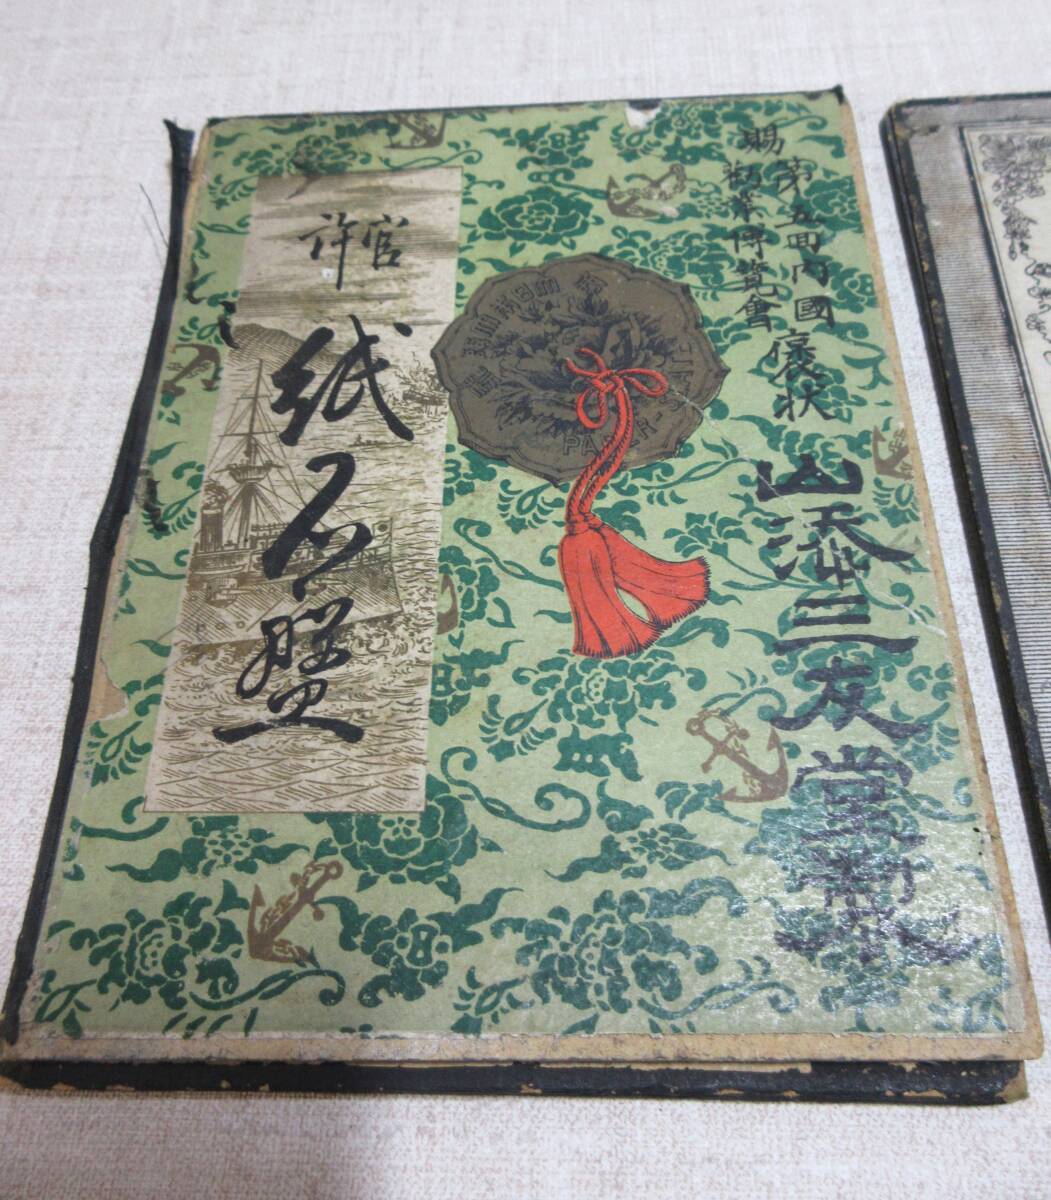 第五回内國
勧業博覧會
賜褒状
山添三友堂製
官許
紙石盤